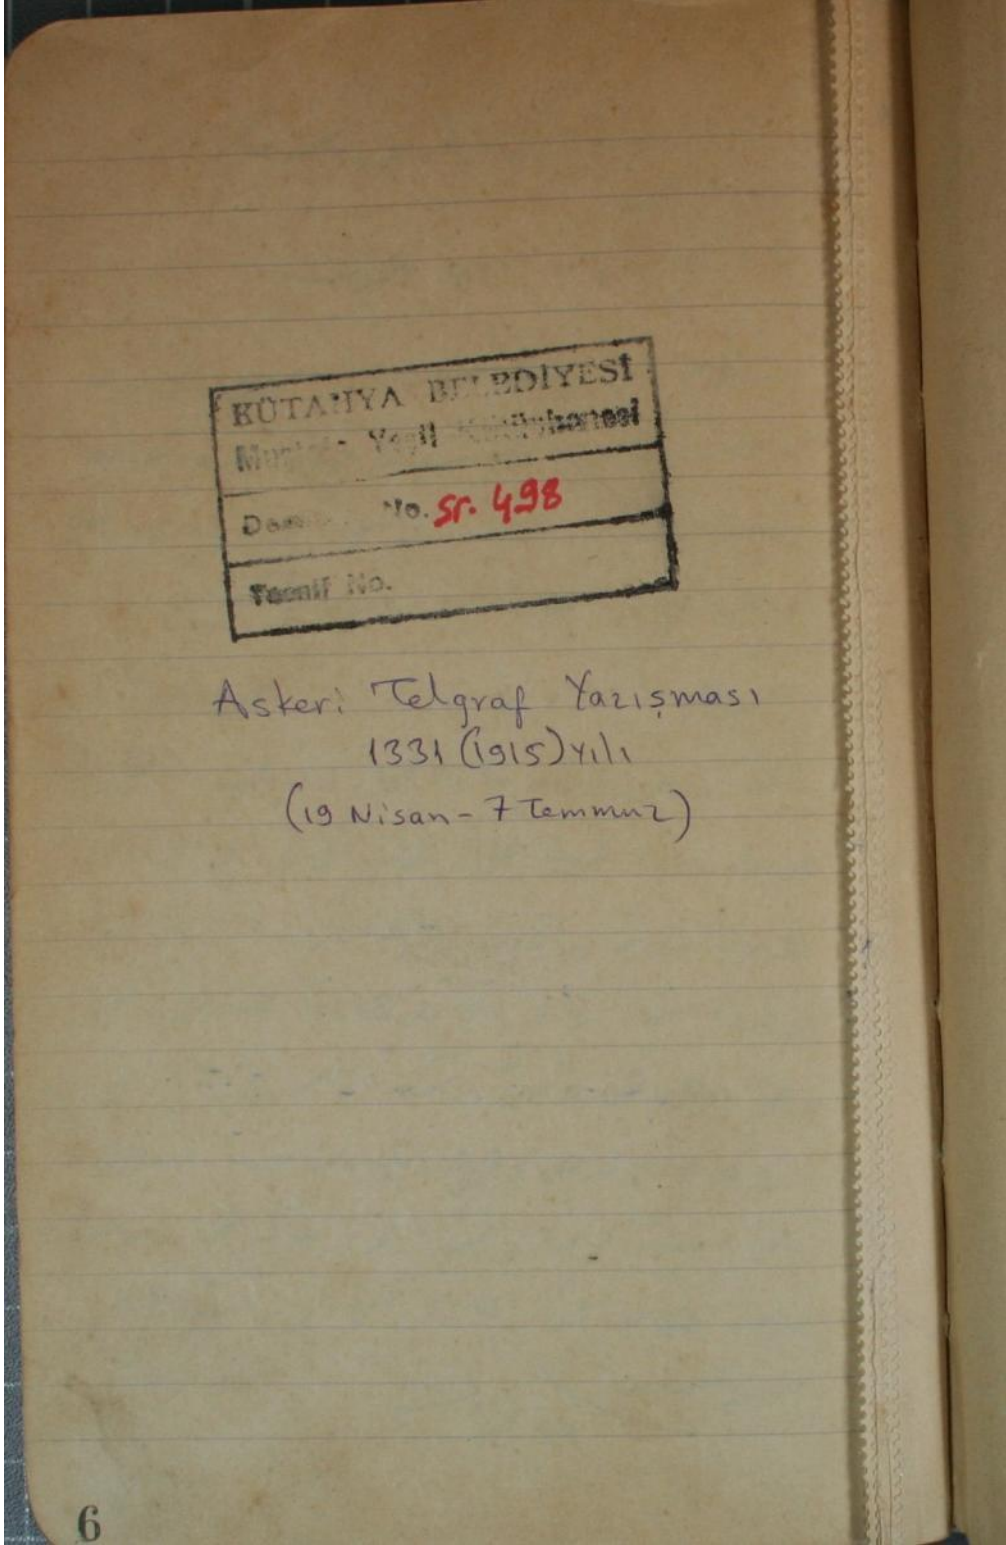 KÜTAHYA BELEDİYESİ
Yeşil Kütüphanesi
No. sr. 498
Tasnif No.
Askeri Telgraf Yazışması
1331 (1915) yılı
(19 Nisan - 7 Temmuz)
6